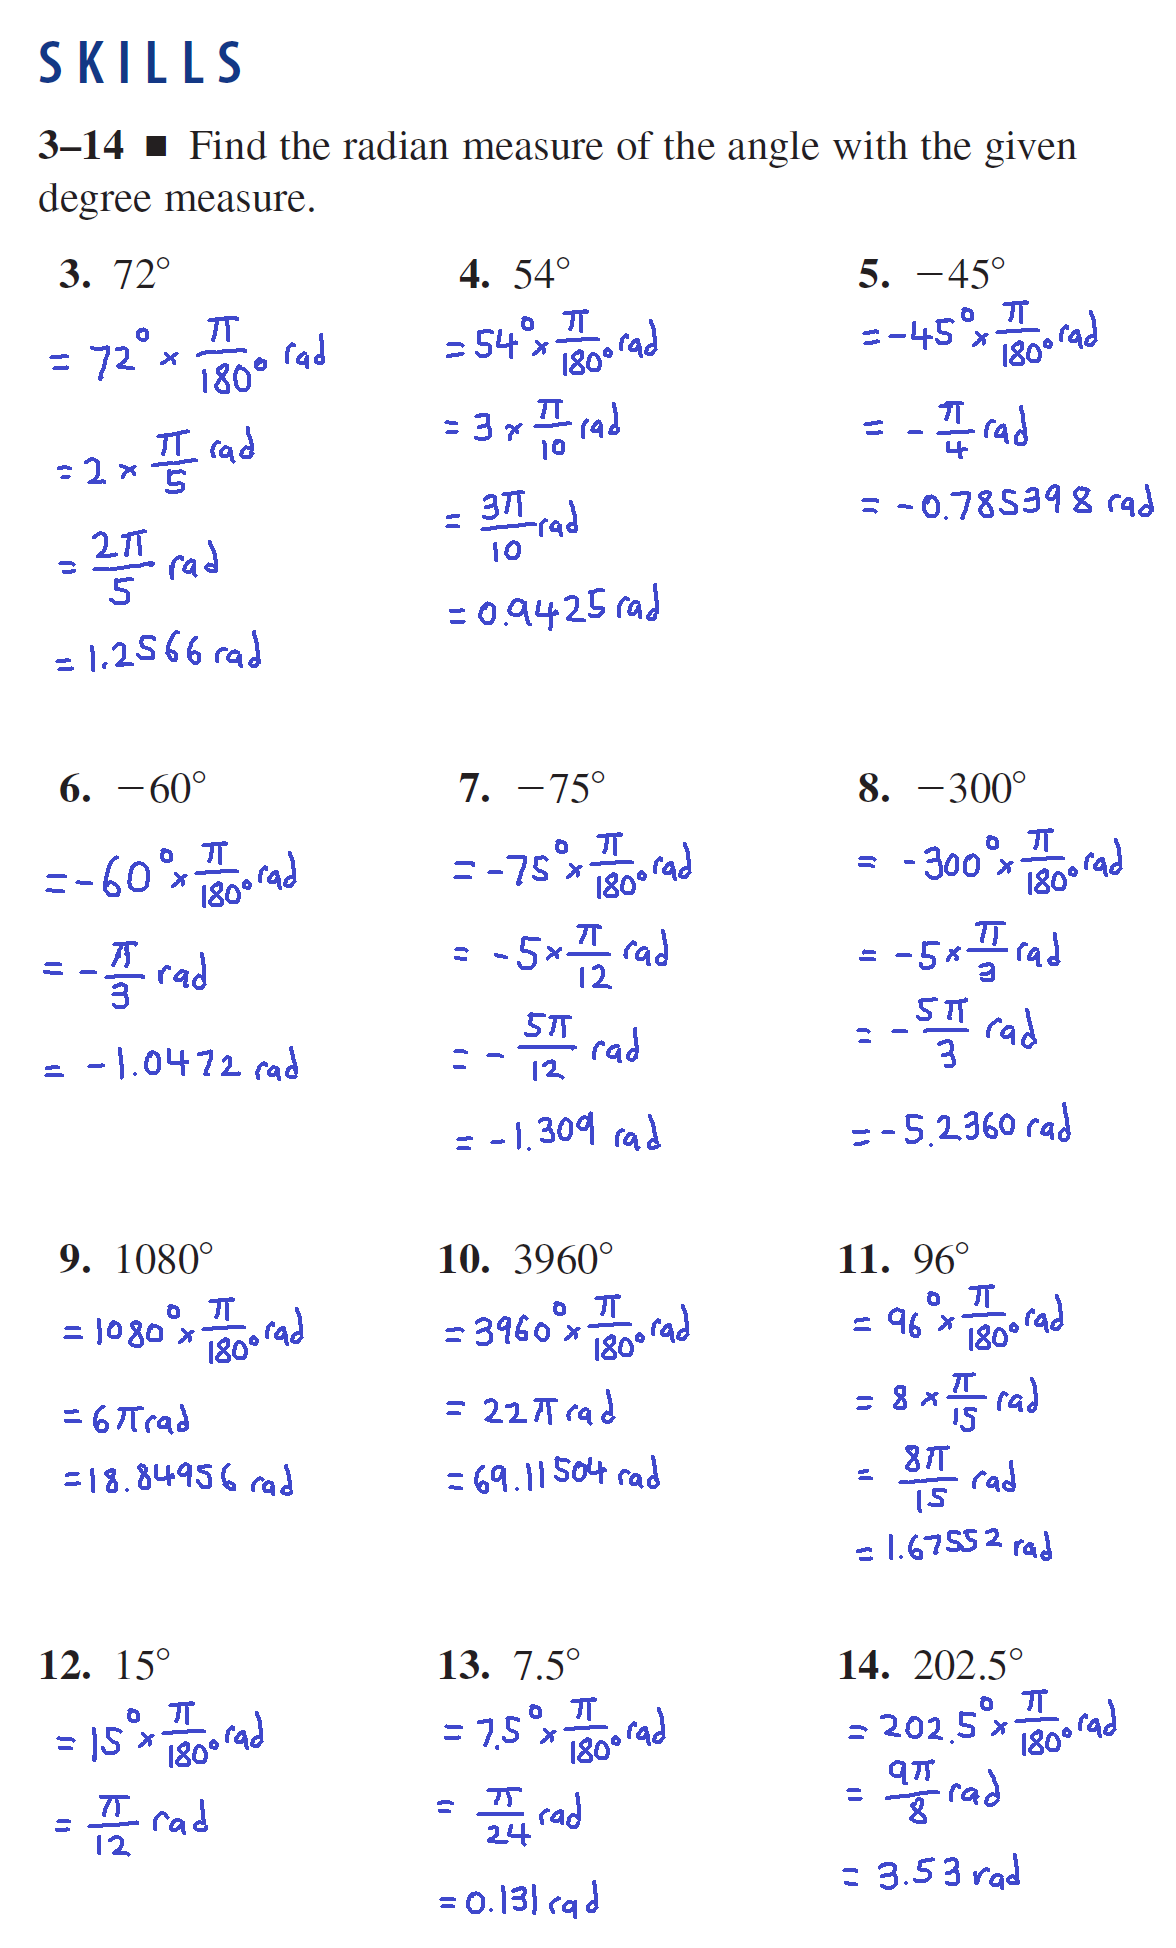 SKILLS
3–14 ■ Find the radian measure of the angle with the given
degree measure.
3. 72°
= 72° × π/180° rad
= 2 × π/5 rad
= 2π/5 rad
= 1.2566 rad
4. 54°
= 54° × π/180° rad
= 3 × π/10 rad
= 3π/10 rad
= 0.9425 rad
5. −45°
= -45° × π/180° rad
= - π/4 rad
= -0.785398 rad
6. −60°
= -60° × π/180° rad
= - π/3 rad
= -1.0472 rad
7. −75°
= -75° × π/180° rad
= -5 × π/12 rad
= - 5π/12 rad
= -1.309 rad
8. −300°
= -300° × π/180° rad
= -5 × π/3 rad
= - 5π/3 rad
= -5.2360 rad
9. 1080°
= 1080° × π/180° rad
= 6π rad
= 18.84956 rad
10. 3960°
= 3960° × π/180° rad
= 22π rad
= 69.11504 rad
11. 96°
= 96° × π/180° rad
= 8 × π/15 rad
= 8π/15 rad
= 1.67552 rad
12. 15°
= 15° × π/180° rad
= π/12 rad
13. 7.5°
= 7.5° × π/180° rad
= π/24 rad
= 0.131 rad
14. 202.5°
= 202.5° × π/180° rad
= 9π/8 rad
= 3.53 rad